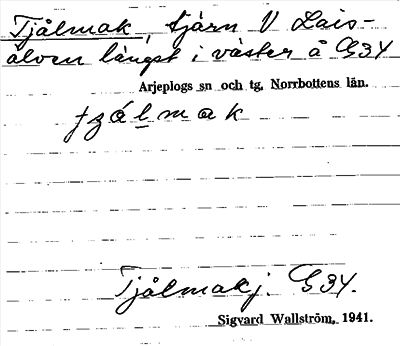 Tjålmak, tjärn V Lais-
älven längst i väster å G34
Arjeplogs sn och tg, Norrbottens län.
tzálmak
Tjålmakj. G34.
Sigvard Wallström, 1941.